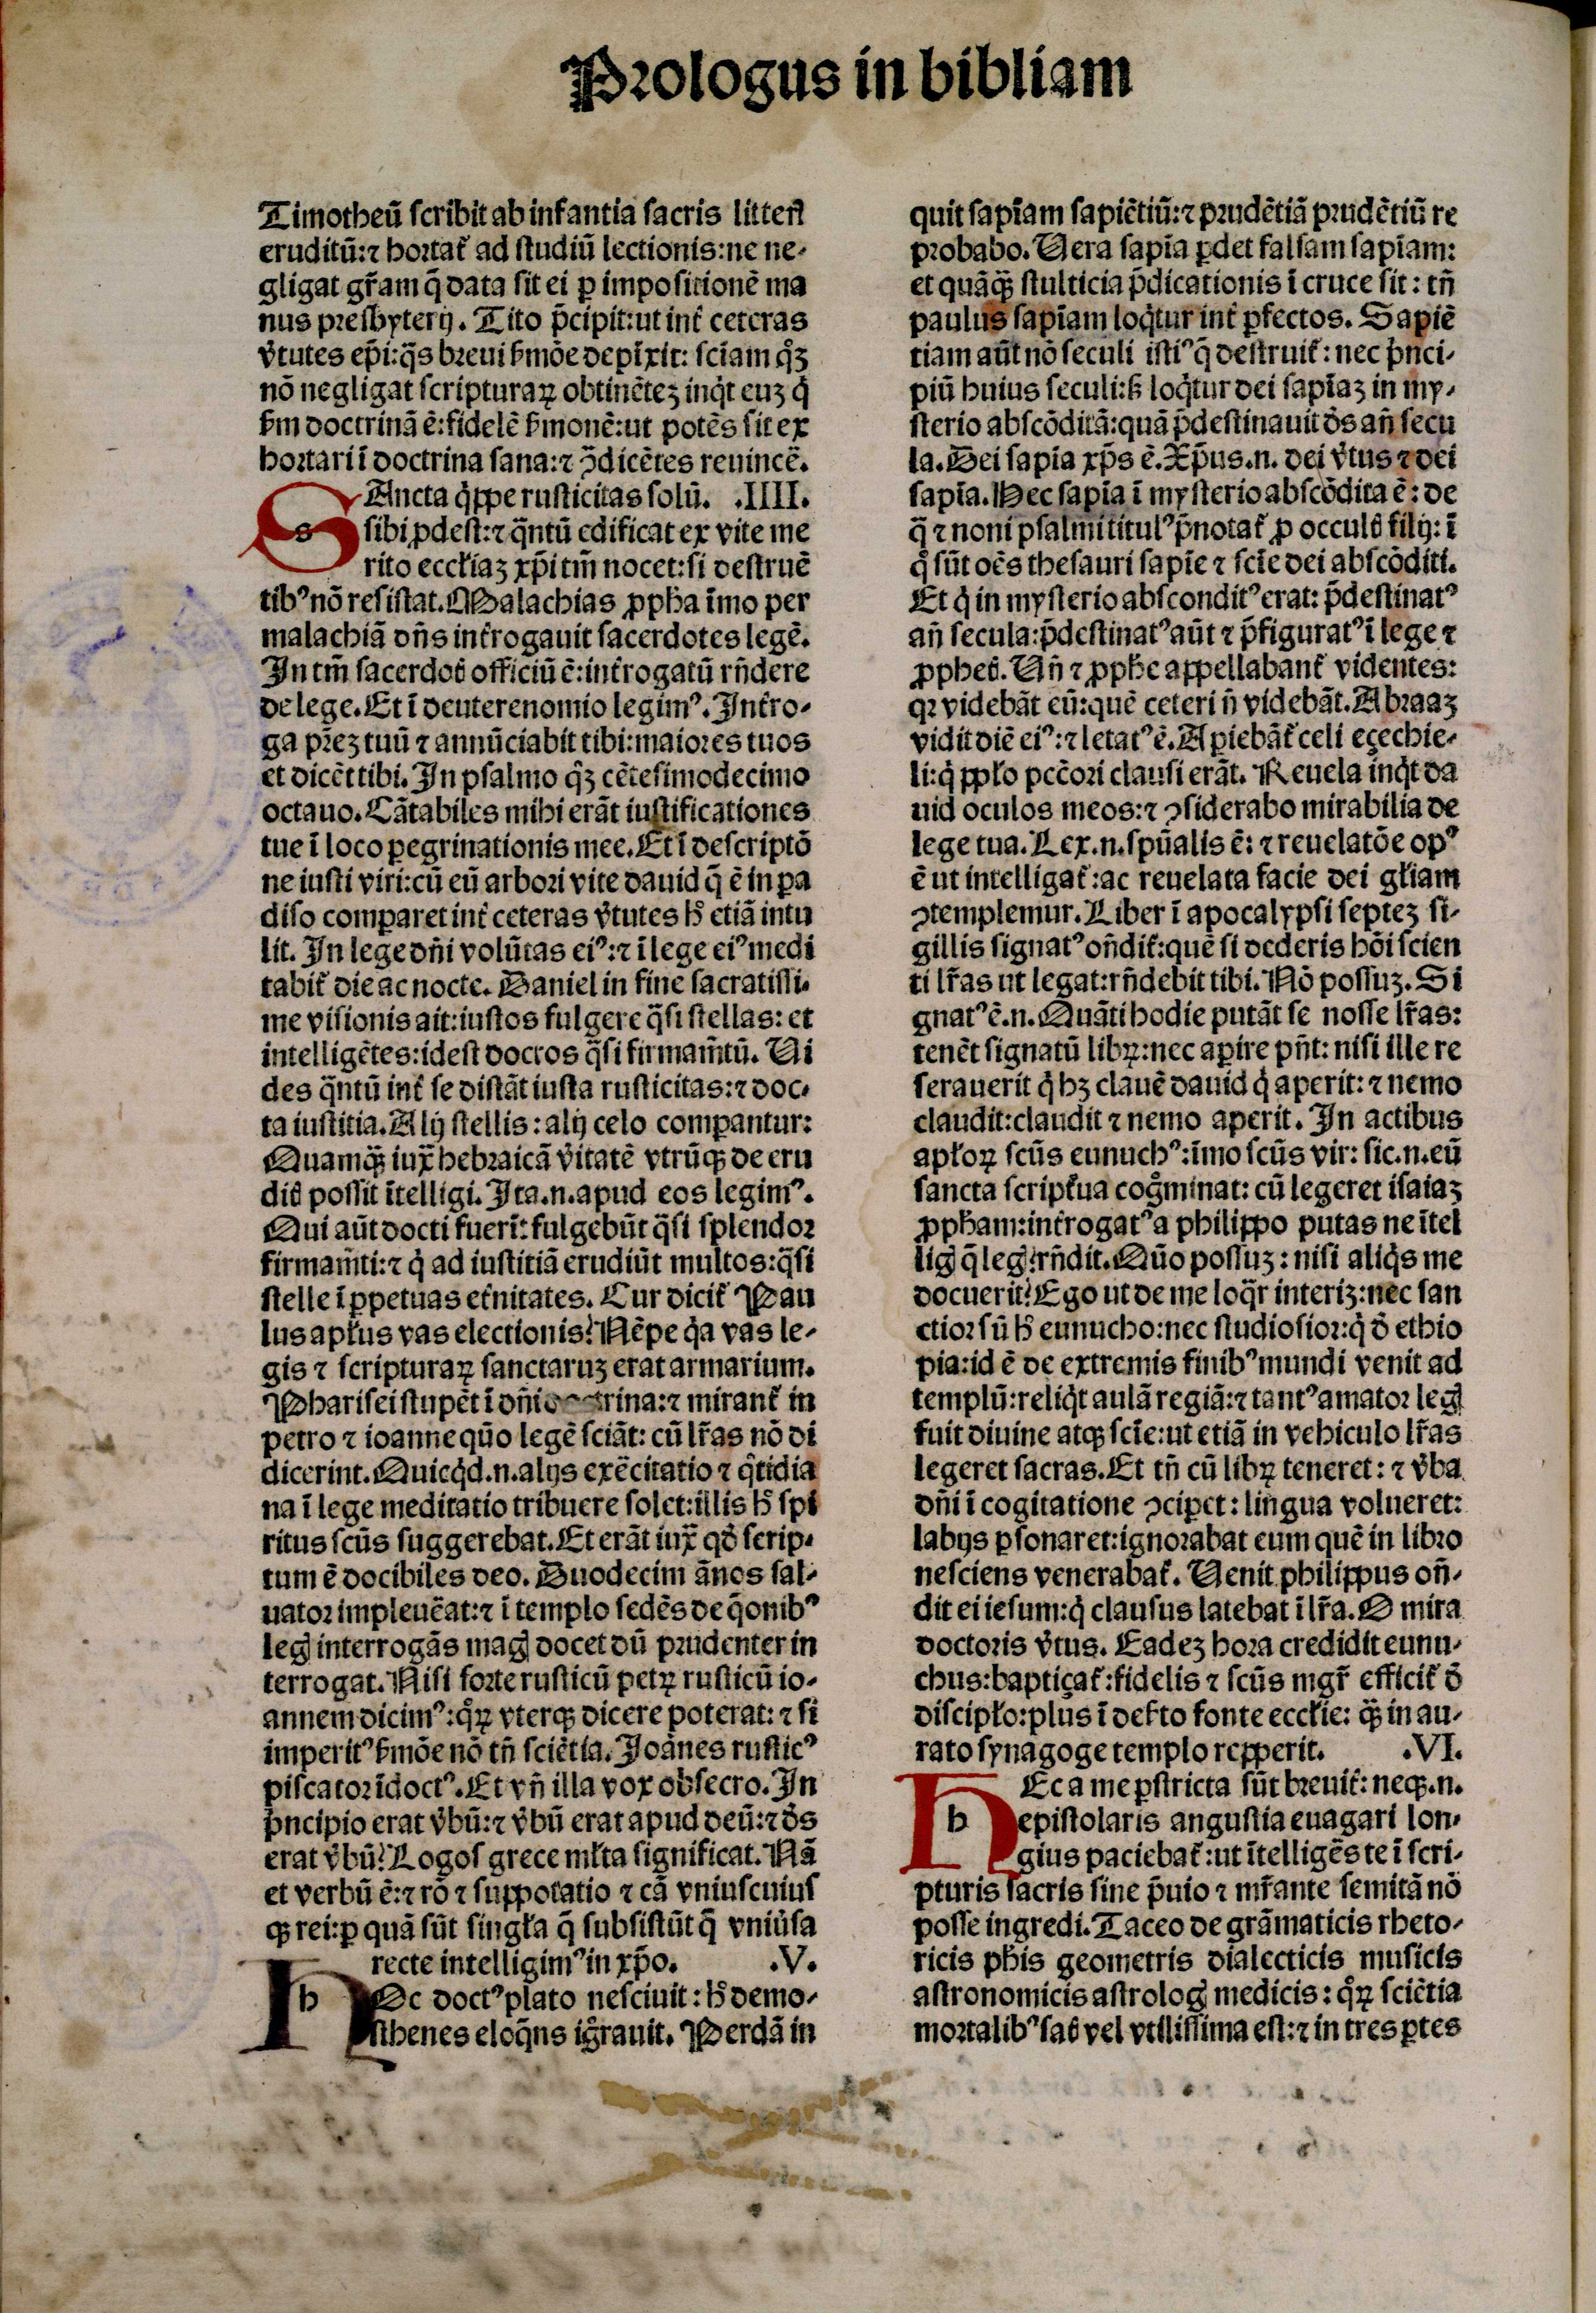 Prologus in bibliam
Timotheū scribit ab infantia sacris litteꝶ
eruditū:⁊ hortat᷑ ad studiū lectionis:ne ne-
gligat gr̄am q̄ data sit ei ꝑ impositionē ma
nus presbyterij. Tito p̄cipit:ut int᷑ ceteras
v̓tutes ep̄i:q̄s breui ẜmōe depīxit: sciam qͦꝫ
nō negligat scripturaꝝ obtinētez inqͥt euꝫ qͥ
ẜm doctrinā ē:fidelē ẜmonē:ut potēs sit ex
hortari ī doctrina sana:⁊ ꝯdicētes reuincē.
SAncta qͥppe rusticitas solū. .IIII.
sibi ꝓdest:⁊ q̄ntū edificat ex vite me
rito eccl̄iaꝫ xp̄i tm̄ nocet:si destruē
tibꝰ nō resistat. Malachias ꝓpha īmo per
malachiā dn̄s int᷑rogauit sacerdotes legē.
In tm̄ sacerdot̓ officiū ē:int᷑rogatū rn̄dere
de lege. Et ī deuterenomio legimꝰ. Int᷑ro-
ga pr̄eꝫ tuū ⁊ annūciabit tibi:maiores tuos
et dicēt tibi. In psalmo qͦꝫ cētesimodecimo
octauo. Cātabiles mihi erāt iustificationes
tue ī loco ꝑegrinationis mee. Et ī descriptō
ne iusti viri:cū eū arbori vite dauid q̄ ē in ꝑa
diso comparet int᷑ ceteras v̓tutes hͦ etiā intu
lit. In lege dn̄i volūtas eiꝰ:⁊ ī lege eiꝰ medi
tabit᷑ die ac nocte. Daniel in fine sacratissi-
me visionis ait:iustos fulgere q̄si stellas: et
intelligētes:idest doctos q̄si firmam̄tū. Ui
des q̄ntū int᷑ se distāt iusta rusticitas:⁊ doc-
ta iustitia. Alij stellis: alij celo comꝑantur:
Quamqꝫ iux̄ hebraicā v̓itatē vtrūqꝫ de eru
dit̓ possit ītelligi. Ita.n.apud eos legimꝰ.
Qui aūt docti fuerīt: fulgebūt q̄si splendor
firmam̄ti:⁊ qͥ ad iustitiā erudiūt multos:q̄si
stelle ī ꝑpetuas et᷑nitates. Cur dicit᷑ Pau
lus apl̄us vas electionis? Nēpe qͥa vas le-
gis ⁊ scripturaꝝ sanctaruꝫ erat armarium.
Pharisei stupēt ī dn̄i rina:⁊ mirant᷑ in
petro ⁊ ioanne qūo legē sciāt: cū lr̄as nō di
dicerint. Quicqͥd.n.alijs exēcitatio ⁊ qͦtidia
na ī lege meditatio tribuere solet:illis hͦ spi
ritus scūs suggerebat. Et erāt iux̄ qd̓ scrip-
tum ē docibiles deo. Duodecim ānos sal-
uator impleuēat:⁊ ī templo sedēs de q̄onibꝰ
legꝭ interrogās magꝭ docet dū prudenter in
terrogat. Nisi forte rusticū petꝝ rusticū io-
annem dicimꝰ:qͦꝝ vterqꝫ dicere poterat: ⁊ si
imperitꝰ ẜmōe nō tn̄ sciētia. Joānes rusticꝰ
piscator īdoctꝰ. Et vn̄ illa vox obsecro. In
p̓ncipio erat v̓bū:⁊ v̓bū erat apud deū:⁊ d̓s
erat v̓bū? Logos grece ml̄ta significat. Nā
et verbū ē:⁊ rō ⁊ supputatio ⁊ cā vniuscuius
qꝫ rei:ꝑ quā sūt singl̄a q̄ subsistūt q̄ vniu̓sa
recte intelligimꝰ in xp̄o. .V.
HOc doctꝰ plato nesciuit: hͦ demo-
sthenes eloq̄ns ig̊rauit. Perdā in
quit sapīam sapiētiū:⁊ prudētiā prudētiū re
probabo. Uera sapīa ꝑdet falsam sapīam:
et quāqꝫ stulticia p̄dicationis ī cruce sit: tn̄
paulus sapīam loqͥtur int᷑ ꝑfectos. Sapiē
tiam aūt nō seculi istiꝰ q̄ destruit᷑: nec p̓nci-
piū huius seculi:ẜ loqͥtur dei sapīaꝫ in my-
sterio abscōditā:quā p̄destinauit d̓s an̄ secu
la. Dei sapīa xp̄s ē. Xp̄us.n. dei v̓tus ⁊ dei
sapīa. Hec sapīa ī mysterio abscōdita ē: de
q̄ ⁊ noni psalmi titulꝰ p̄notat᷑ ꝓ occult̓ filij: ī
qͦ sūt oēs thesauri sapīe ⁊ scīe dei abscōditi.
Et qͥ in mysterio absconditꝰ erat: p̄destinatꝰ
an̄ secula:p̄destinatꝰ aūt ⁊ p̄figuratꝰ ī lege ⁊
ꝓphet̓. Un̄ ⁊ ꝓphe appellabant᷑ videntes:
qꝛ videbāt eū:quē ceteri n̄ videbāt. Abraaꝫ
vidit diē eiꝰ:⁊ letatꝰ ē. Apiebāt᷑ celi eçechie-
li:qͥ ppl̄o pctōri clausi erāt. Reuela inqͥt da
uid oculos meos:⁊ ꝯsiderabo mirabilia de
lege tua. Lex.n.spūalis ē: ⁊ reuelatōe opꝰ
ē ut intelligat᷑:ac reuelata facie dei gl̄iam
ꝯtemplemur. Liber ī apocalypsi septeꝫ si-
gillis signatꝰ on̄dit᷑:quē si dederis hōi scien
ti lr̄as ut legat:rn̄debit tibi. Nō possuꝫ. Si
gnatꝰ ē.n. Quāti hodie putāt se nosse lr̄as:
tenēt signatū libꝝ:nec aperire pn̄t: nisi ille re
serauerit qͥ hꝫ clauē dauid qͥ aperit: ⁊ nemo
claudit:claudit ⁊ nemo aperit. In actibus
apl̄oꝝ scūs eunuchꝰ:īmo scūs vir: sic.n.eū
sancta script᷑ua cog̊minat: cū legeret isaiaꝫ
ꝓpham:int᷑rogatꝰ a philippo putas ne ītel
ligꝭ q̄ legꝭ?rn̄dit. Qūo possuꝫ: nisi aliqͥs me
docuerit? Ego ut de me loq̄r interiꝫ:nec san
ctior sū hͦ eunucho:nec studiosior:qͥ d̓ ethio
pia:id ē de extremis finibꝰ mundi venit ad
templū:reliqͥt aulā regiā:⁊ tantꝰ amator legꝭ
fuit diuine atqꝫ scīe:ut etiā in vehiculo lr̄as
legeret sacras. Et tn̄ cū libꝝ teneret: ⁊ v̓ba
dn̄i ī cogitatione ꝯciꝑet: lingua volueret:
labijs ꝑsonaret:ignorabat eum quē in libro
nesciens venerabat᷑. Uenit philippus on̄-
dit ei iesum:qͥ clausus latebat ī lr̄a. O mira
doctoris v̓tus. Eadeꝫ hora credidit eunu-
chus:baptiçat᷑:fidelis ⁊ scūs mgr̄ efficit᷑ d̓
discipl̄o:plus ī deẜto fonte eccl̄ie: qꝫ in au-
rato synagoge templo repperit. .VI.
HEc a me ꝑstricta sūt breuit᷑: neqꝫ.n.
epistolaris angustia euagari lon-
gius paciebat᷑:ut ītelligēs te ī scri-
pturis sacris sine p̄uio ⁊ mr̄ante semitā nō
posse ingredi. Taceo de grāmaticis rheto-
ricis phis geometris dialecticis musicis
astronomicis astrologꝭ medicis: qͦꝝ sciētia
mortalibꝰ sat̓ vel vtilissima est:⁊ in tres ꝑtes